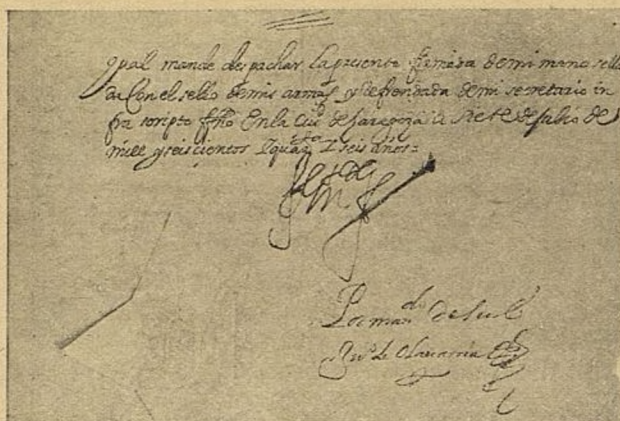 qual mande despachar la presente firmada de mi mano sella
da Con el sello de mis armas y refrendada de mi secretario in
fra scripto fho En la ciu.d de Saragoza a siete de Julio de
mill y seiscientos y quar.ta y seis años=
Por man.do de su ex.a